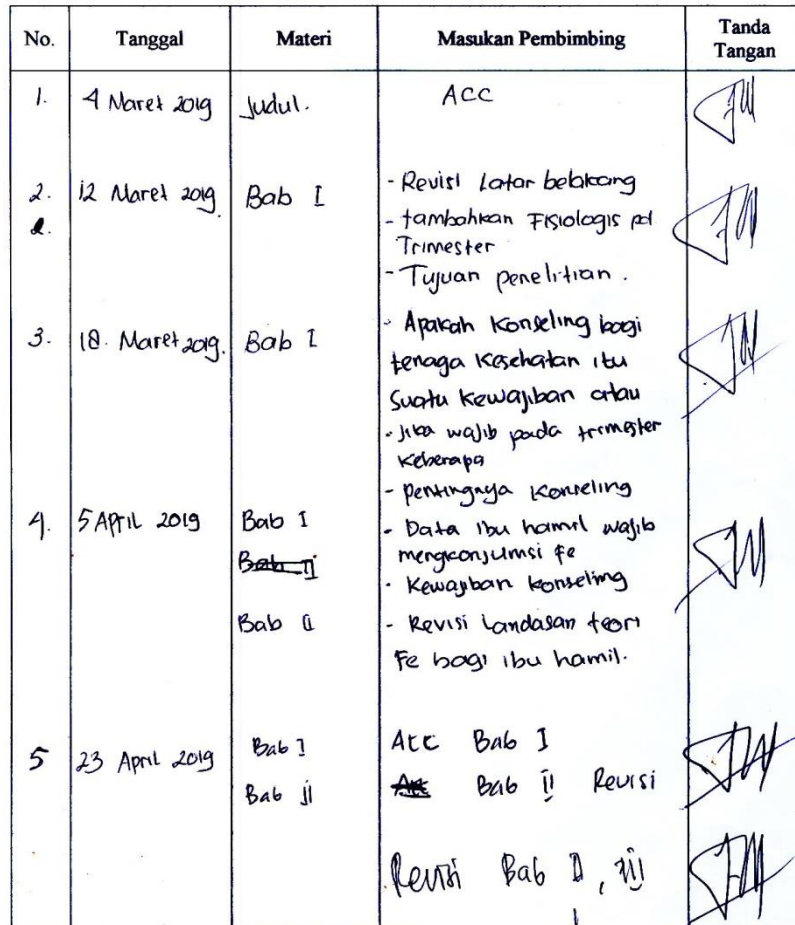 No. Tanggal Materi Masukan Pembimbing Tanda Tangan
1. 4 Maret 2019 Judul. ACC
2. 12 Maret 2019 Bab I - Revisi Latar belakang
2. - tambahkan Fisiologis pd
Trimester
- Tujuan penelitian.
3. 18. Maret 2019. Bab I - Apakah Konseling bagi
tenaga Kesehatan itu
Suatu Kewajiban atau
- Jika wajib pada trimester
Keberapa
- pentingnya Konseling
4. 5 April 2019 Bab I - Data ibu hamil wajib
Bab II mengkonsumsi fe
- Kewajiban konseling
Bab II - Revisi Landasan teori
Fe bagi ibu hamil.
5 23 April 2019 Bab I Acc Bab I
Bab II Acc Bab II Revisi
Revisi Bab II, III